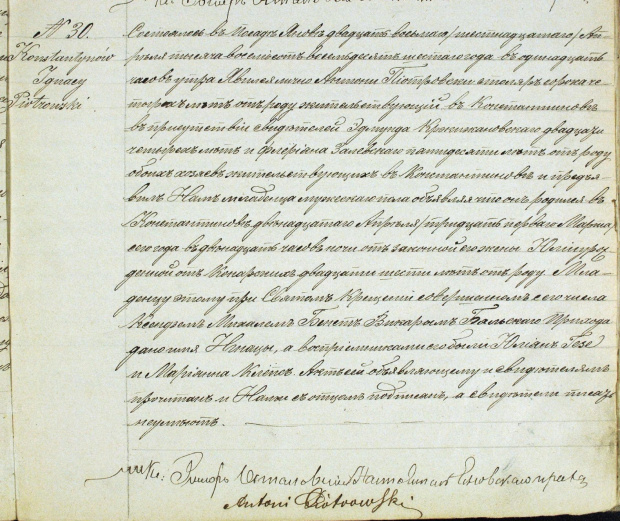 № 30.
Konstantynów
Ignacy
Piotrowski.
Состоялось въ Посадѣ двадцать восьмаго /шестнадцатаго/ Ап-
рѣля тысяча восемьсотъ восемьдесятъ шестаго года въ одинадцать
часовъ утра. Явился лично Антони Піотровски столяръ сорока че-
тырехъ лѣтъ отъ роду жительствующій въ Константиновѣ
въ присутствіе свидѣтелей Эдмунда двадцати
четырехъ лѣтъ и Флоріана Залевскаго пятидесяти лѣтъ отъ роду
обоихъ жительствующихъ въ Константиновѣ и предъя-
вилъ Намъ младенца мужескаго пола объявляя что онъ родился въ
Константиновѣ двѣнадцатаго Апрѣля /тридцать перваго Марта/
сего года въ двѣнадцать часовъ ночи отъ законной его жены Юліи рож-
денной отъ двадцати шести лѣтъ отъ роду. Мла-
денцу этому при Святомъ Крещеніи совершенномъ сего числа
Ксендзомъ Викарымъ Прихода
дано имя Игнацы, а воспріемниками его были Юліанъ
и Маріанна Актъ сей объявляющему и свидѣтелямъ
прочитанъ и Нами съ отцомъ подписанъ, а свидѣтели писать
неумѣютъ.
Antoni Piotrowski